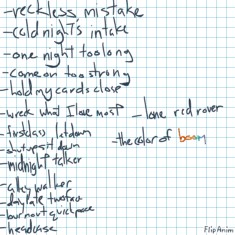 -reckless, mistake
-cold night's intake
-one night too long
-came on too strong
-hold my cards close
-wreck what I love most
-lone red rover
-firstclass letdown
-the color of boom
-shut up sit down
-midnight talker
-alley walker
-day late two faced
-burnout quick pace
-headcase
FlipAnim